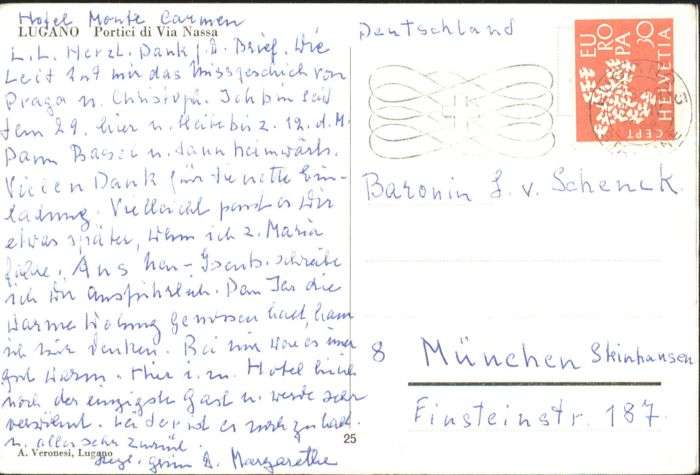 Hotel Monte Carmen
LUGANO Portici di Via Nassa
L. L. Herzl. Dank f. D. Brief. Wie
Leid tut mir das Missgeschick von
Praga u. Christoph. Ich bin seit
dem 29. hier u. bleibe bis z. 12. d. M.
Dann Basel u. dann heimwärts.
Vielen Dank für die nette Ein-
ladung. Vielleicht passt es Dir
etwas später, wenn ich z. Maria
fahre. Aus schreibe
ich Dir ausführlich. Dass Du die
warme Wohnung genossen hast, kann
ich mir denken. Bei mir war es immer
gut warm. Hier i. m. Hotel bin ich
noch der einzigste Gast u. werde sehr
verwöhnt. Leider ist es noch zu kalt
u. alles sehr zurück.
Hzgl. grüsst D. Margarethe
A. Veronesi, Lugano
25
Deutschland
EUROPA 30
HELVETIA
CEPT
Baronin L. v. Schenck
8 München Steinhausen
Einsteinstr. 187.